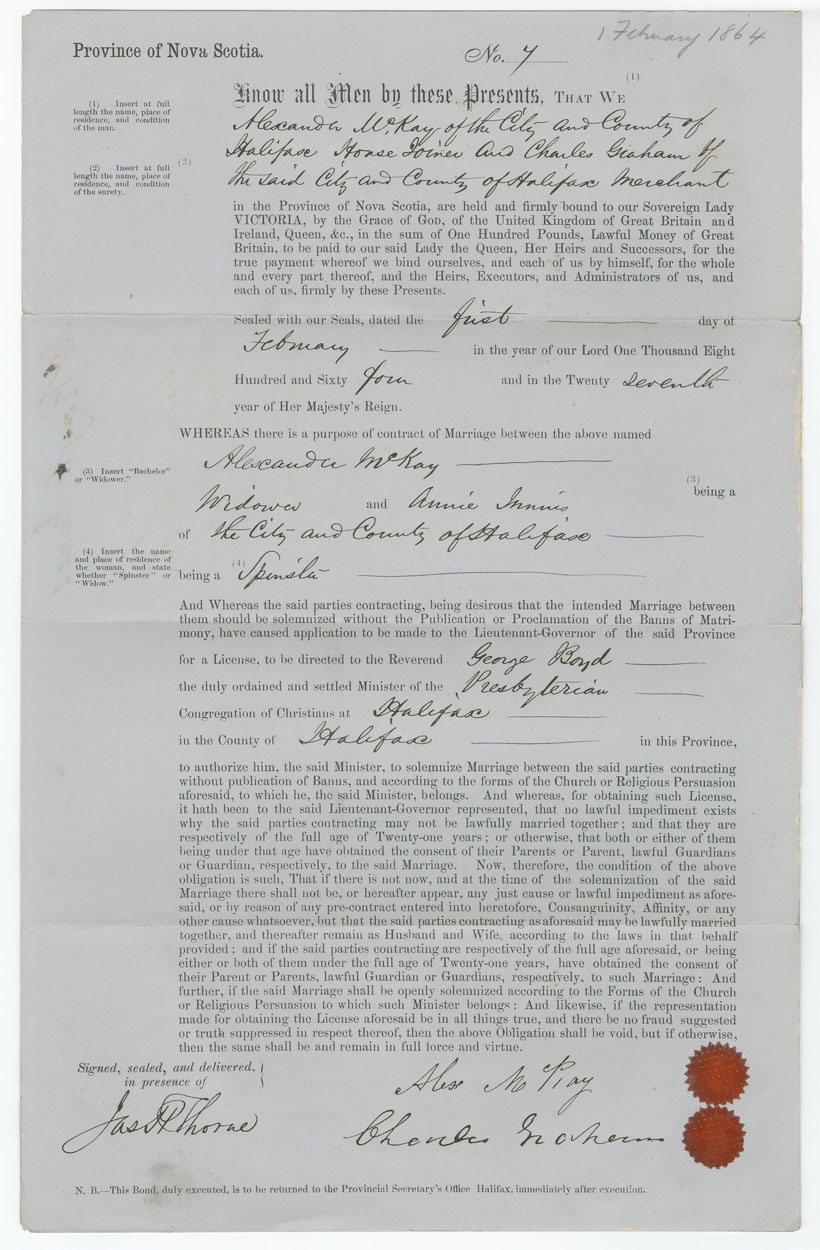 1 February 1864
Province of Nova Scotia.
No. 7
(1)
Know all Men by these Presents, THAT WE
(1) Insert at full
length the name, place of
residence, and condition
of the man.
Alexander McKay of the City and County of
(2)
Halifax House Joiner and Charles Graham of
(2) Insert at full
length the name, place of
residence, and condition
of the surety.
the said City and County of Halifax Merchant
in the Province of Nova Scotia, are held and firmly bound to our Sovereign Lady
VICTORIA, by the Grace of God, of the United Kingdom of Great Britain and
Ireland, Queen, &c., in the sum of One Hundred Pounds, Lawful Money of Great
Britain, to be paid to our said Lady the Queen, Her Heirs and Successors, for the
true payment whereof we bind ourselves, and each of us by himself, for the whole
and every part thereof, and the Heirs, Executors, and Administrators of us, and
each of us, firmly by these Presents.
Sealed with our Seals, dated the first day of
February in the year of our Lord One Thousand Eight
Hundred and Sixty four and in the Twenty seventh
year of Her Majesty's Reign.
WHEREAS there is a purpose of contract of Marriage between the above named
Alexander McKay
(3) Insert "Bachelor"
or "Widower."
(3)
being a
Widower and Annie Innis
of the City and County of Halifax
(4) Insert the name
and place of residence of
the woman, and state
whether "Spinster" or
"Widow."
being a (4) Spinster
And Whereas the said parties contracting, being desirous that the intended Marriage between
them should be solemnized without the Publication or Proclamation of the Banns of Matri-
mony, have caused application to be made to the Lieutenant-Governor of the said Province
for a License, to be directed to the Reverend George Boyd
the duly ordained and settled Minister of the Presbyterian
Congregation of Christians at Halifax
in the County of Halifax in this Province,
to authorize him, the said Minister, to solemnize Marriage between the said parties contracting
without publication of Banns, and according to the forms of the Church or Religious Persuasion
aforesaid, to which he, the said Minister, belongs. And whereas, for obtaining such License,
it hath been to the said Lieutenant-Governor represented, that no lawful impediment exists
why the said parties contracting may not be lawfully married together; and that they are
respectively of the full age of Twenty-one years; or otherwise, that both or either of them
being under that age have obtained the consent of their Parents or Parent, lawful Guardians
or Guardian, respectively, to the said Marriage. Now, therefore, the condition of the above
obligation is such, That if there is not now, and at the time of the solemnization of the said
Marriage there shall not be, or hereafter appear, any just cause or lawful impediment as afore-
said, or by reason of any pre-contract entered into heretofore, Consanguinity, Affinity, or any
other cause whatsoever, but that the said parties contracting as aforesaid may be lawfully married
together, and thereafter remain as Husband and Wife, according to the laws in that behalf
provided; and if the said parties contracting are respectively of the full age aforesaid, or being
either or both of them under the full age of Twenty-one years, have obtained the consent of
their Parent or Parents, lawful Guardian or Guardians, respectively, to such Marriage: And
further, if the said Marriage shall be openly solemnized according to the Forms of the Church
or Religious Persuasion to which such Minister belongs: And likewise, if the representation
made for obtaining the License aforesaid be in all things true, and there be no fraud suggested
or truth suppressed in respect thereof, then the above Obligation shall be void, but if otherwise,
then the same shall be and remain in full force and virtue.
Signed, sealed, and delivered,
in presence of
Alex McKay
Jas H Thorne
Charles Graham
N. B.—This Bond, duly executed, is to be returned to the Provincial Secretary's Office Halifax, immediately after execution.